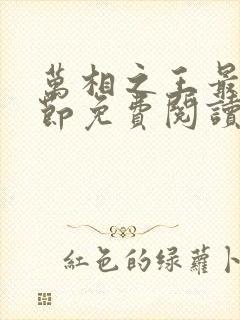 萬相之王最
節免費閱讀
紅色的绿蘿卜